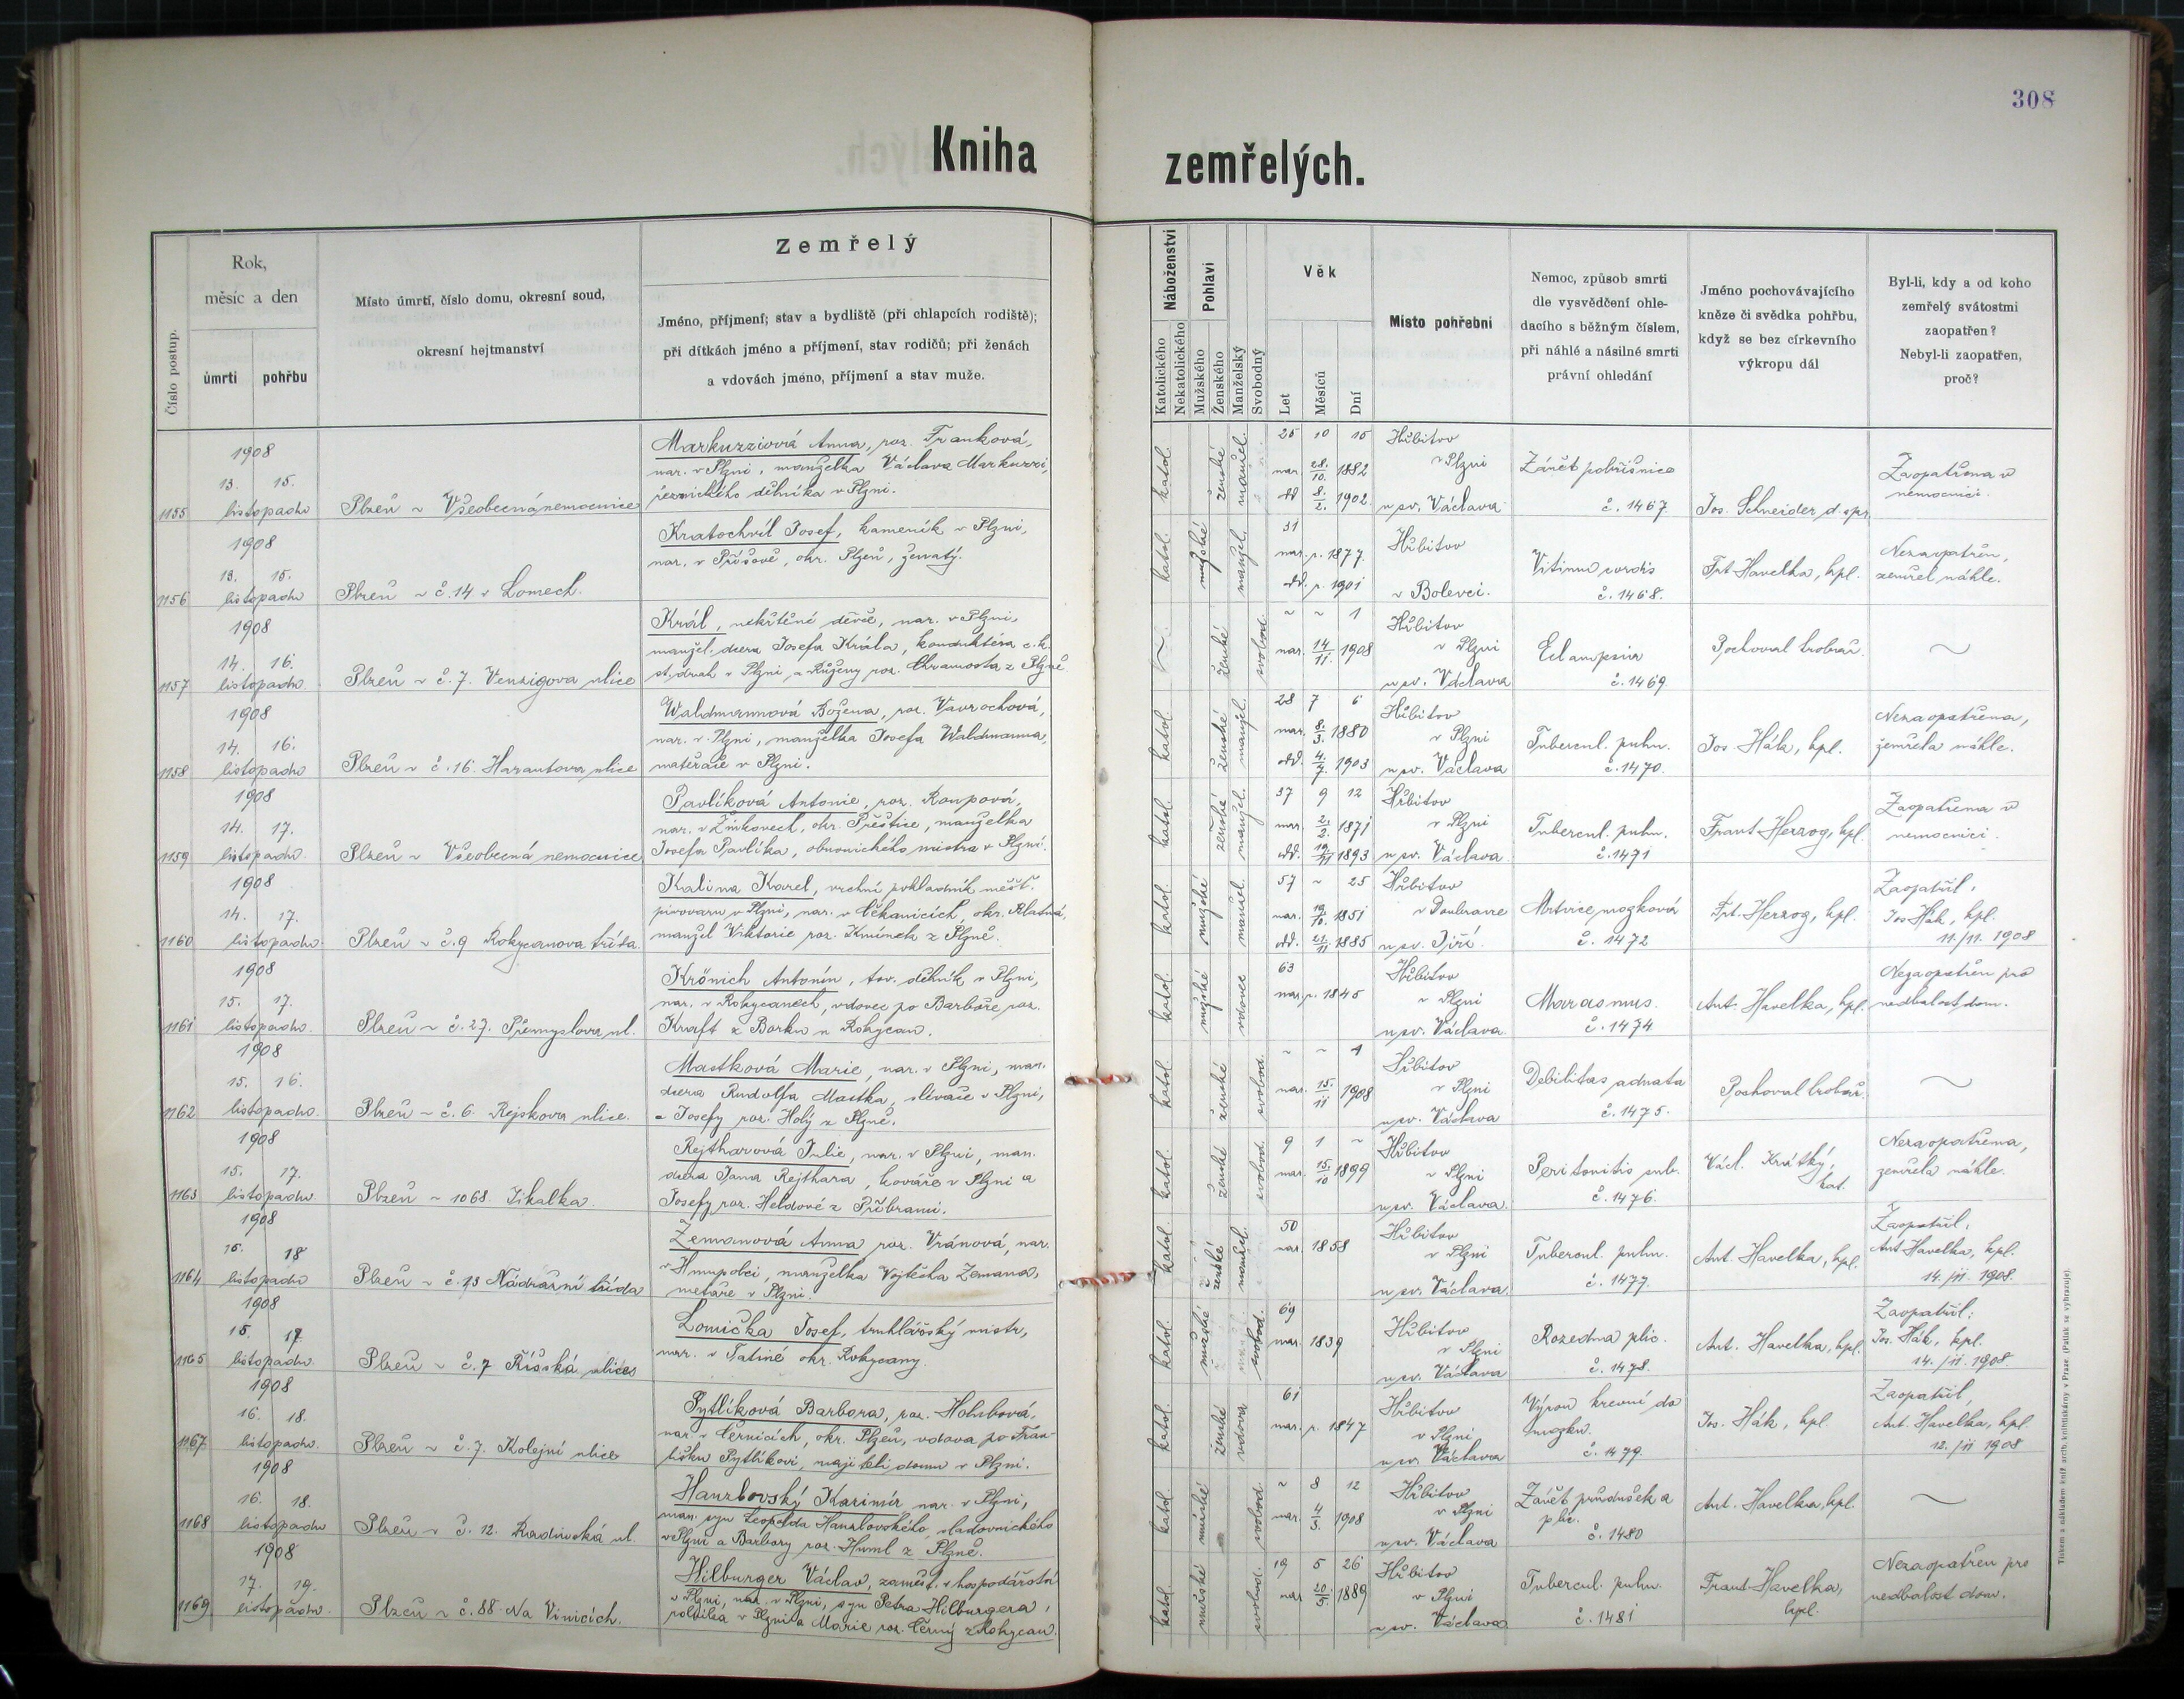 308
Kniha zemřelých.
Číslo postup.
Rok,
měsíc a den
úmrtí
pohřbu
Místo úmrtí, číslo domu, okresní soud,
okresní hejtmanství
Zemřelý
Jméno, příjmení; stav a bydliště (při chlapcích rodiště);
při dítkách jméno a příjmení, stav rodičů; při ženách
a vdovách jméno, příjmení a stav muže.
Náboženství
Katolického
Nekatolického
Pohlaví
Mužského
Ženského
Manželský
Svobodný
Věk
Let
Měsíců
Dní
Místo pohřební
Nemoc, způsob smrti
dle vysvědčení ohle-
dacího s běžným číslem,
při náhlé a násilné smrti
právní ohledání
Jméno pochovávajícího
kněze či svědka pohřbu,
když se bez církevního
výkropu dál
Byl-li, kdy a od koho
zemřelý svátostmi
zaopatřen?
Nebyl-li zaopatřen,
proč?
1155
1908
13. 15.
listopadu
Plzeň ~ Všeobecná nemocnice
Markuzziová Anna, roz. Franková,
nar. v Plzni, manželka Václava Markuzzi,
řeznického dělníka v Plzni.
katol. ženské manžel.
25 10 15
nar. 28./10. 1882
odd. 8./2. 1902
Hřbitov
v Plzni
u sv. Václava
Zánět pobřišnice
č. 1467
Jos. Schneider d. spr.
Zaopatřena v
nemocnici.
1156
1908
13. 15.
listopadu
Plzeň ~ č. 14 v Lomech.
Kratochvíl Josef, kameník v Plzni,
nar. v Příšově, okr. Plzeň, ženatý.
katol. mužské manžel.
31
nar. r. 1877.
odd. r. 1901
Hřbitov
v Bolevci.
Vitium cordis
č. 1468.
Frt Havelka, kpl.
Nezaopatřen,
zemřel náhle.
1157
1908
14. 16.
listopadu.
Plzeň ~ č. 7. Venzigova ulice
Král, nekřtěné děvče, nar. v Plzni,
manžel. dcera Josefa Krále, konduktéra c. k.
st. drah v Plzni, a Růženy roz. Chramosta z Plzně
~ ženské svobod.
~ ~ 1
nar. 14/11. 1908
Hřbitov
v Plzni
u sv. Václava
Eclampsia
č. 1469.
Pochoval hrobař.
~
1158
1908
14. 16.
listopadu
Plzeň ~ č. 16. Harantova ulice
Waldmannová Božena, roz. Vavrochová,
nar. v Plzni, manželka Josefa Waldmanna,
matěraře v Plzni.
katol. ženské manžel.
28 7 6
nar. 8./3. 1880
odd. 4./7. 1903
Hřbitov
v Plzni
u sv. Václava
Tubercul. pulm.
č. 1470.
Jos. Hák, kpl.
Nezaopatřena,
zemřela náhle.
1159
1908
14. 17.
listopadu.
Plzeň ~ Všeobecná nemocnice
Pavlíková Antonie, roz. Roupová,
nar. v Žinkovech, okr. Přeštice, manželka
Josefa Pavlíka, obuvnického mistra v Plzni.
katol. ženské manžel.
37 9 12
nar. 2./2. 1871
odd. 19./11 1893
Hřbitov
v Plzni
u sv. Václava
Tubercul. pulm.
č. 1471
Frant Herzog, kpl.
Zaopatřena v
nemocnici.
1160
1908
14. 17.
listopadu.
Plzeň ~ č. 9 Rokycanova třída
Kalina Karel, vrchní pokladník měšť.
pivovaru v Plzni, nar. v Čekanicích, okr. Blatná,
manžel Viktorie roz. Kmínek z Plzně.
katol. mužské manžel.
57 ~ 25
nar. 19./10. 1851
odd. 21./11 1885
Hřbitov
v Doubravce
u sv. Jiří.
Mrtvice mozková
č. 1472
Frt. Herzog, kpl.
Zaopatřil,
Jos Hák, kpl.
11./11. 1908
1161
1908
15. 17.
listopadu.
Plzeň ~ č. 27. Přemyslova ul.
Krönich Antonín, tov. dělník v Plzni,
nar. v Rokycanech, vdovec po Barboře roz.
Kraft z Borku u Rokycan.
katol. mužské vdovec
63
nar. r. 1845
Hřbitov
v Plzni
u sv. Václava
Marasmus.
č. 1474
Ant. Havelka, kpl.
Nezaopatřen pro
nedbalost dom.
1162
1908
15. 16.
listopadu.
Plzeň ~ č. 6. Rejskova ulice.
Mastková Marie, nar. v Plzni, man.
dcera Rudolfa Mastka, slévače v Plzni,
a Josefy roz. Holý z Plzně.
katol. ženské svobod.
~ ~ 1
nar. 15./11 1908
Hřbitov
v Plzni
u sv. Václava
Debilitas adnata
č. 1475.
Pochoval hrobař.
~
1163
1908
15. 17.
listopadu
Plzeň ~ 1068. Jikalka.
Rejtharová Julie, nar. v Plzni, man.
dcera Jana Rejthara, kováře v Plzni a
Josefy roz. Heldové z Příbrami.
katol. ženské svobod.
9 1 ~
nar. 15./10 1899
Hřbitov
v Plzni
u sv. Václava
Peritonitis sub.
č. 1476.
Václ. Krátký,
kat.
Nezaopatřena,
zemřela náhle.
1164
1908
15. 18
listopadu
Plzeň ~ č. 13 Nádražní třída
Zemanová Anna roz. Vránová, nar.
manželka Vojtěcha Zemana,
metaře v Plzni.
katol. ženské manžel.
50
nar. 1858
Hřbitov
v Plzni
u sv. Václava
Tubercul. pulm.
č. 1477.
Ant. Havelka, kpl.
Zaopatřil,
Ant Havelka, kpl.
14./11. 1908.
1165
1908
15. 17.
listopadu.
Plzeň ~ č. 7 Říšská ulice
Lomička Josef, truhlářský mistr,
nar. v Tatiné okr. Rokycany.
katol. mužské svobod.
69
nar. 1839
Hřbitov
v Plzni
u sv. Václava
Rozedma plic.
č. 1478.
Ant. Havelka, kpl.
Zaopatřil:
Jos. Hák, kpl.
14./11. 1908.
1167
1908
16. 18.
listopadu.
Plzeň ~ č. 7. Kolejní ulice
Pytlíková Barbora, roz. Holubová,
nar. v Černicích, okr. Plzeň, vdova po Fran-
tišku Pytlíkovi, majiteli domu v Plzni.
katol. ženské vdova
61
nar. r. 1847
Hřbitov
v Plzni
u sv. Václava
Výron krevní do
mozku.
č. 1479.
Jos. Hák, kpl.
Zaopatřil,
Ant. Havelka, kpl
12./11 1908
1168
1908
16. 18.
listopadu
Plzeň ~ č. 12. Radinská ul.
Hanzlovský Kazimír nar. v Plzni,
man. syn Leopolda Hanzlovského, sladovnického
v Plzni a Barbory roz. Huml z Plzně.
katol. mužské svobod.
~ 8 12
nar. 4/3. 1908
Hřbitov
v Plzni
u sv. Václava
Zánět průdušek a
plic.
č. 1480
Ant. Havelka, kpl.
~
1169
1908
17. 19.
listopadu.
Plzeň ~ č. 88 Na Vinicích.
Hilburger Václav, zaměst. v hospodářství
v Plzni, nar. v Plzni, syn Petra Hilburgera,
rolníka v Plzni a Marie roz. Černý z Rokycan.
katol. mužské svobod.
19 5 26
nar. 20/5. 1889
Hřbitov
v Plzni
u sv. Václava
Tubercul. pulm.
č. 1481
Frant Havelka,
kpl.
Nezaopatřen pro
nedbalost dom.
Tiskem a nákladem kníž. arcib. knihtiskárny v Praze. (Patisk se vyhrazuje).